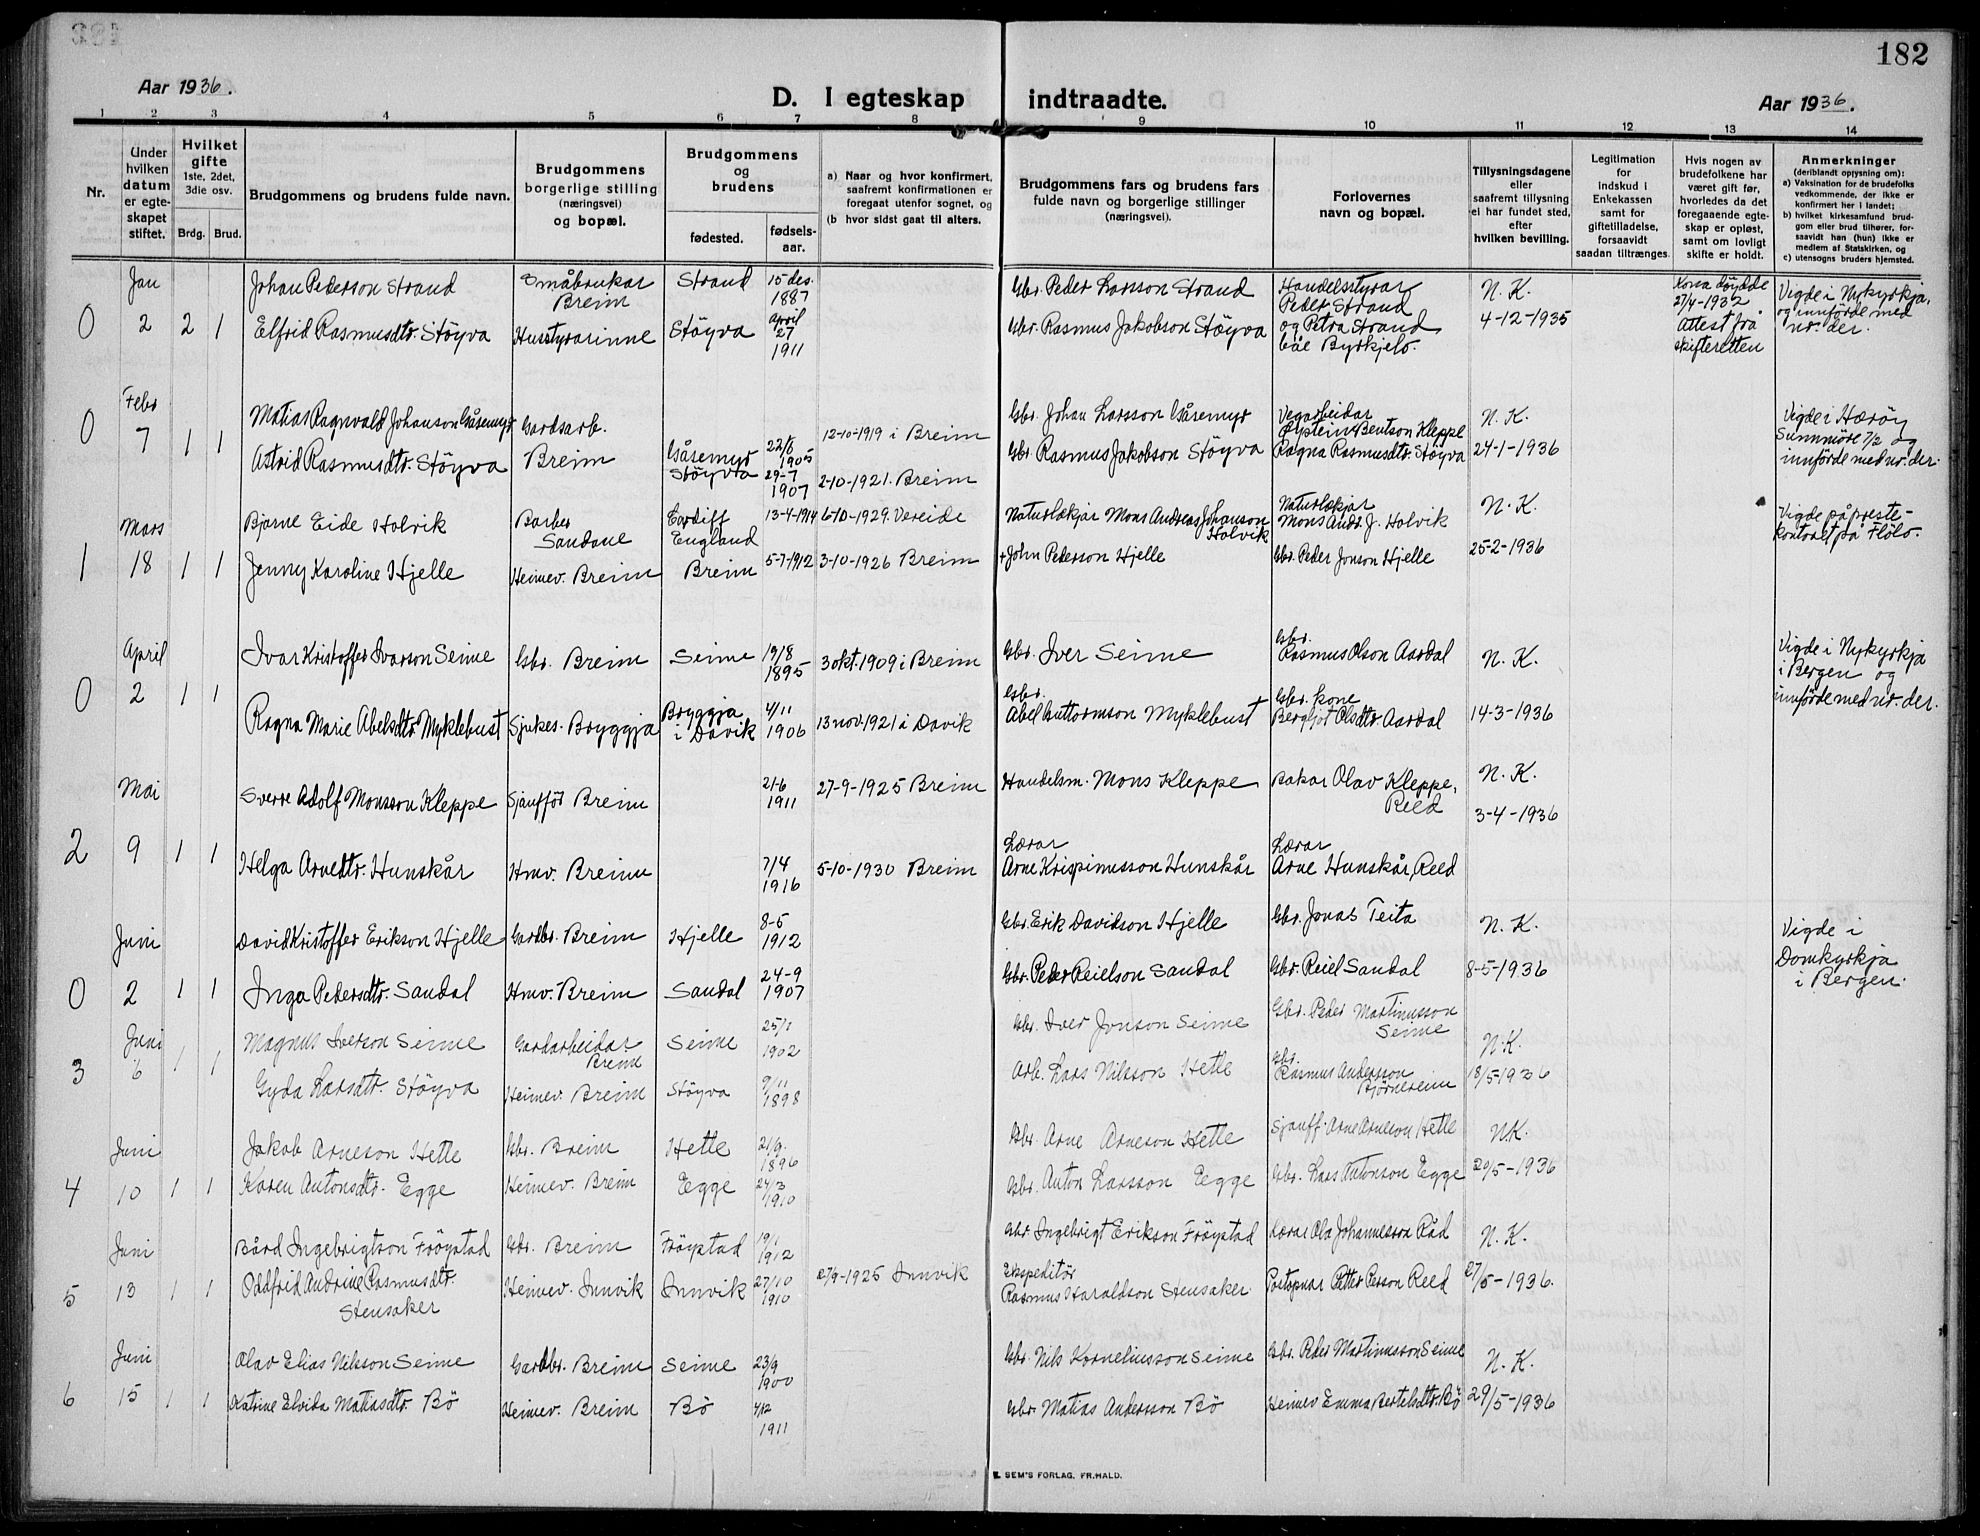 182
Aar 1936.
D. I egteskap indtraadte.
Aar 1936.
1 2 3 4 5 6 7 8 9 10 11 12 13 14
Nr.
Under hvilken datum er egte- skapet stiftet.
Hvilket gifte 1ste, 2det, 3die osv.
Brdg. Brud.
Brudgommens og brudens fulde navn.
Brudgommens borgerlige stilling (næringsvei) og bopæl.
Brudgommens og brudens
fødested.
fødsels- aar.
a) Naar og hvor konfirmert, saafremt konfirmationen er foregaat utenfor sognet, og
(b hvor sidst gaat til alters.
Brudgommens fars og brudens fars fulde navn og borgerlige stillinger (næringsvei).
Forlovernes navn og bopæl.
Tillysningsdagene eller saafremt tillysning ei har fundet sted, efter hvilken bevilling.
Legitimation for indskud i Enkekassen samt for giftetilladelse, forsaavidt saadan tiltrænges.
Hvis nogen av brudefolkene har været gift før, hvorledes da det foregaaende egte- skap er opløst, samt om lovligt skifte er holdt.
Anmerkninger (deriblandt opjysning om):
a) Vaksination for de brudefolks vedkommende, der ikke er konfirmert her i landet;
b) hvilket kirkesamfund brud- gom eller brud tilhører, for- saavidt han (hun) ikke er medlem af Statskirken, og
c) utensogns bruders hjemsted.
Jan Johan Pederson Strand Småbrukar Breim Strand 15 des. 1887 Gbr. Peder Larsson Strand Handelsstyrar Peder Strand N. K. Kona døydde 27/4-1932 Vigde i Nykyrkja, og innförde med nr. der.
0 2 2 1 Elfrid Rasmusdtr. Støyva Husstyrarinne Støyva April 27 1911 Gbr. Rasmus Jakobson Støyva og Petra Strand båe Byrkjelo. 4-12-1935 Attest frå skifteretten
Febr Matias Ragnvald Johanson Gåsemyr Gardsarb. Gåsemyr 22/8 1905 12-10-1919 i Breim Gbr. Johan Larsson Gåsemyr Vegarbeidar Øystein Bentson Kleppe N. K. Vigde i Herøy Sunnmöre 7/2 og innförde med nr. der.
0 7 1 1 Astrid Rasmusdtr. Støyva Breim Støyva 29-7 1907 2-10-1921. Breim Gbr. Rasmus Jakobson Støyva Ragna Rasmusdtr. Støyva 24-1-1936
Mars Bjarne Eide Holvik Barber Sandane Cardiff England 13-4-1914 6-10-1929. Vereide Naturlækjar Mons Andreas Johanson Holvik Naturlækjar Mons Andr. J. Holvik N. K. Vigde på preste- kontoret på Flölo.
1 18 1 1 Jenny Karoline Hjelle Heimev. Breim Breim 5-7-1912 3-10-1926 Breim + John Pederson Hjelle Gbr. Peder Jonson Hjelle 25-2-1936
April Ivar Kristoffer Ivarson Seime Gbr. Breim Seime 19/8 1895 3 okt. 1909 i Breim Gbr. Iver Seime Gbr. Rasmus Olson Aardal N. K. Vigde i Nykyrkja i Bergen og innförde med nr. der.
0 2 1 1 Ragna Marie Abelsdtr. Myklebust Sjukes. Bryggja Bryggja i Davik 4/11 1906 13 nov. 1921 i Davik Gbr. Abel Guttormson Myklebust Gbr. kone Bergljot Olsdtr. Aardal 14-3-1936
Mai Sverre Adolf Monsson Kleppe Sjåufför Breim 21-6 1911 27-9-1925 Breim Handelsm. Mons Kleppe Bakar Olav Kleppe, Reed N. K. 3-4-1936
2 9 1 1 Helga Arnedtr. Hunskår Hmv. Breim 7/4 1916 5-10-1930 Breim Lærar Arne Krispinusson Hunskår Lærar Arne Hunskår, Reed
Juni David Kristoffer Erikson Hjelle Gardbr. Breim Hjelle 8-5 1912 Gbr. Erik Davidson Hjelle Gbr. Jonas Teita N. K. Vigde i Domkyrkja i Bergen.
0 2 1 1 Inga Pedersdtr. Sandal Hmv. Breim Sandal 24-9 1907 Gbr. Peder Reielson Sandal Gbr. Reiel Sandal 8-5-1936
Juni Magnus Iverson Seime Gardarbeidar Breim Seime 25/1 1902 Gbr. Iver Jonson Seime Gbr. Peder Martinusson Seime N. K.
3 6 1 1 Gyda Larsdtr. Støyva Heimev. Breim Støyva 9/11 1898 Arb. Lars Nilsson Hetle Gbr. Rasmus Andersson Bjørnereim 18/5-1936
Juni Jakob Arneson Hetle Gbr. Breim Hetle 21/9. 1896 Gbr. Arne Arneson Hetle Sjauff. Arne Arneson Hetle N.K.
4 10 1 1 Karen Antonsdtr. Egge Heimev. Breim Egge 24/3 1910 Gbr. Anton Larsson Egge Gbr. Lars Antonson Egge 20/5-1936
Juni Bård Ingebrigtson Fröystad Gbr. Breim Fröystad 19/1 1912 Gbr. Ingebrigt Erikson Fröystad Lærar Ola Johannesson Råd N. K.
5 13 1 1 Oddfrid Andrine Rasmusdtr. Stensaker Heimev. Innvik Innvik 27/10 1910 27/9-1925 Innvik Ekspeditör Rasmus Haraldson Stensaker Postopnar Petter Person Reed 27/5-1936.
Juni Olav Elias Nilsson Seime Gardbr. Breim Seime 23/9 1900 Gbr. Nils Korneliusson Seime Gbr. Peder Martinusson Seime N. K.
6 15 1 1 Katrine Elvida Matiasdtr. Bö Heimev. Breim Bö 4/12 1911 Gbr. Matias Andersson Bö Heimev Emma Bertelsdtr. Bö 29/5-1936
E. SEM'S FORLAG, FR.HALD.